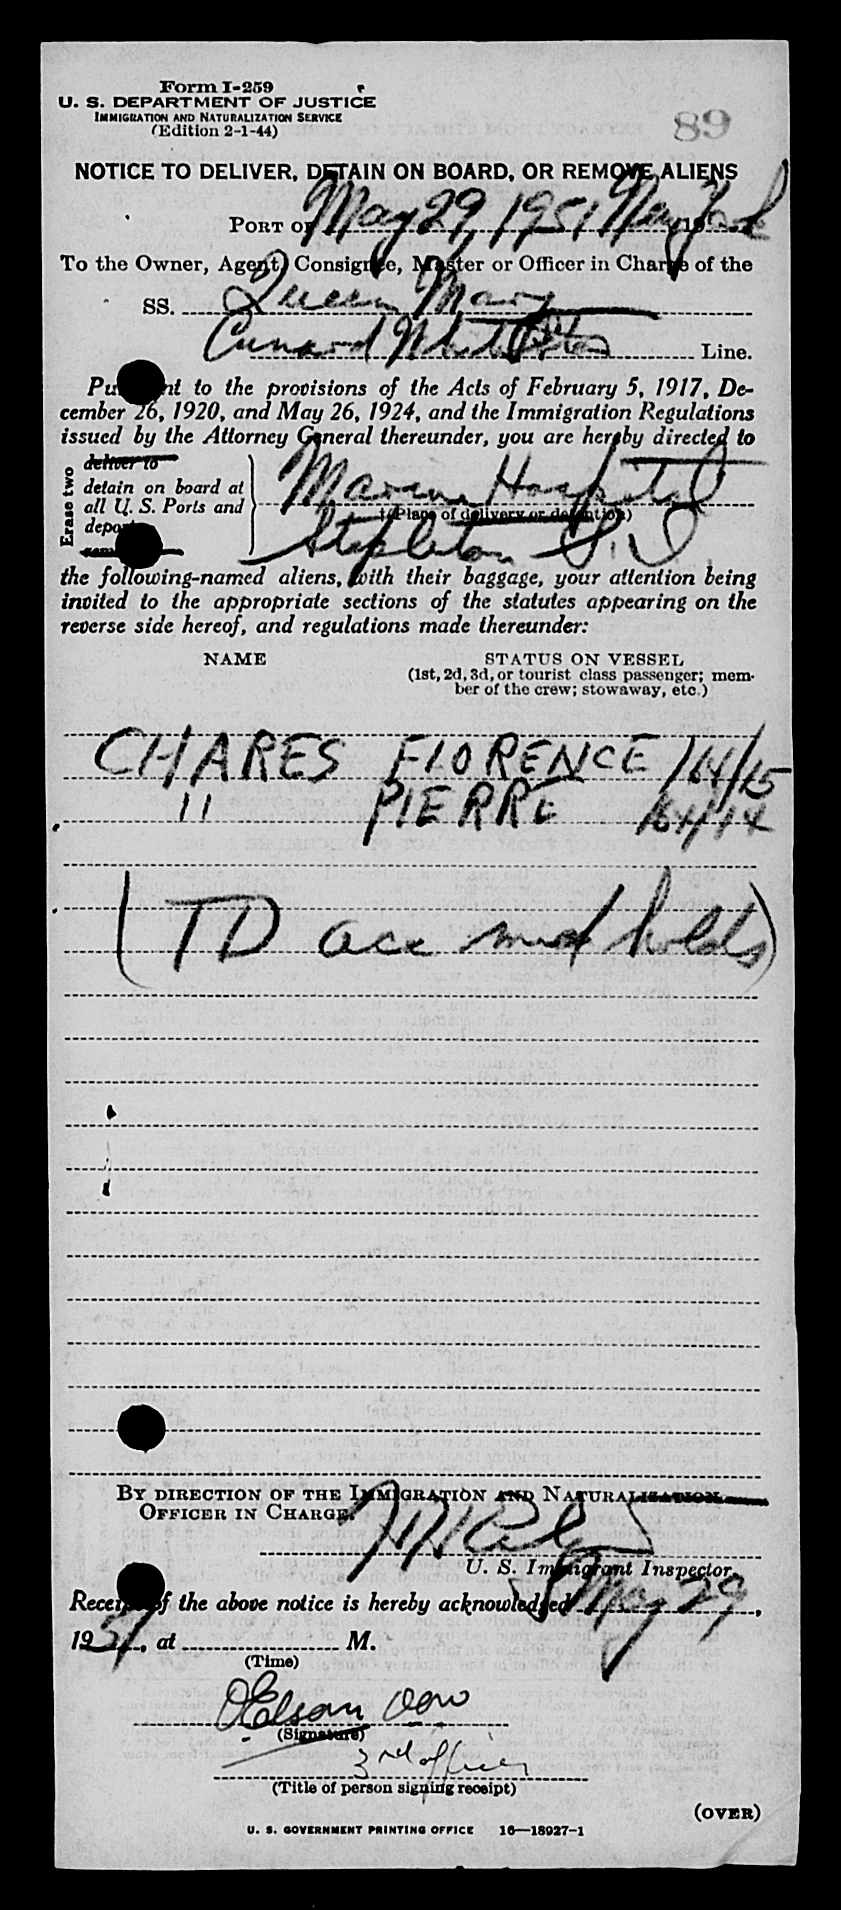 Form I-259
U. S. DEPARTMENT OF JUSTICE
IMMIGRATION AND NATURALIZATION SERVICE
(Edition 2-1-44)
89
NOTICE TO DELIVER, DETAIN ON BOARD, OR REMOVE ALIENS
PORT OF May 29, 1951 New York
To the Owner, Agent, Consignee, Master or Officer in Charge of the
SS. Queen Mary
Cunard White Star Line.
Pursuant to the provisions of the Acts of February 5, 1917, De-
cember 26, 1920, and May 26, 1924, and the Immigration Regulations
issued by the Attorney General thereunder, you are hereby directed to
Erase two
deliver to
detain on board at
all U. S. Ports and
deport
Marine Hospital
†(Place of delivery or detention)
Stapleton S. I.
the following-named aliens, with their baggage, your attention being
invited to the appropriate sections of the statutes appearing on the
reverse side hereof, and regulations made thereunder:
NAME STATUS ON VESSEL
(1st, 2d, 3d, or tourist class passenger; mem-
ber of the crew; stowaway, etc.)
CHARES FLORENCE 164/15
" PIERRE 164/14
(TD acc med holds)
BY DIRECTION OF THE IMMIGRATION AND NATURALIZATION
OFFICER IN CHARGE.
U. S. Immigrant Inspector.
Receipt of the above notice is hereby acknowledged May 29,
1951, at M.
(Time)
(Signature)
3rd officer
(Title of person signing receipt)
(OVER)
U. S. GOVERNMENT PRINTING OFFICE 16—18927-1